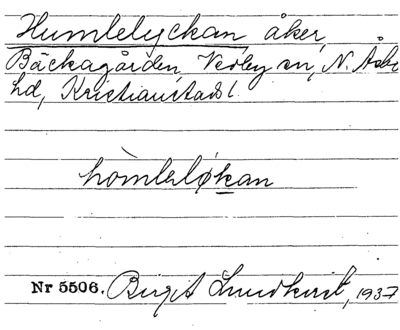 Humlelyckan, åker,
Bäckagården, Vedby sn, N. Åsbo
hd, Kristianstads l.
hòmleløkan
Nr 5506. Birgit Lundkvist, 1937